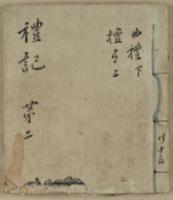 曲禮下
檀弓上
禮記 第二